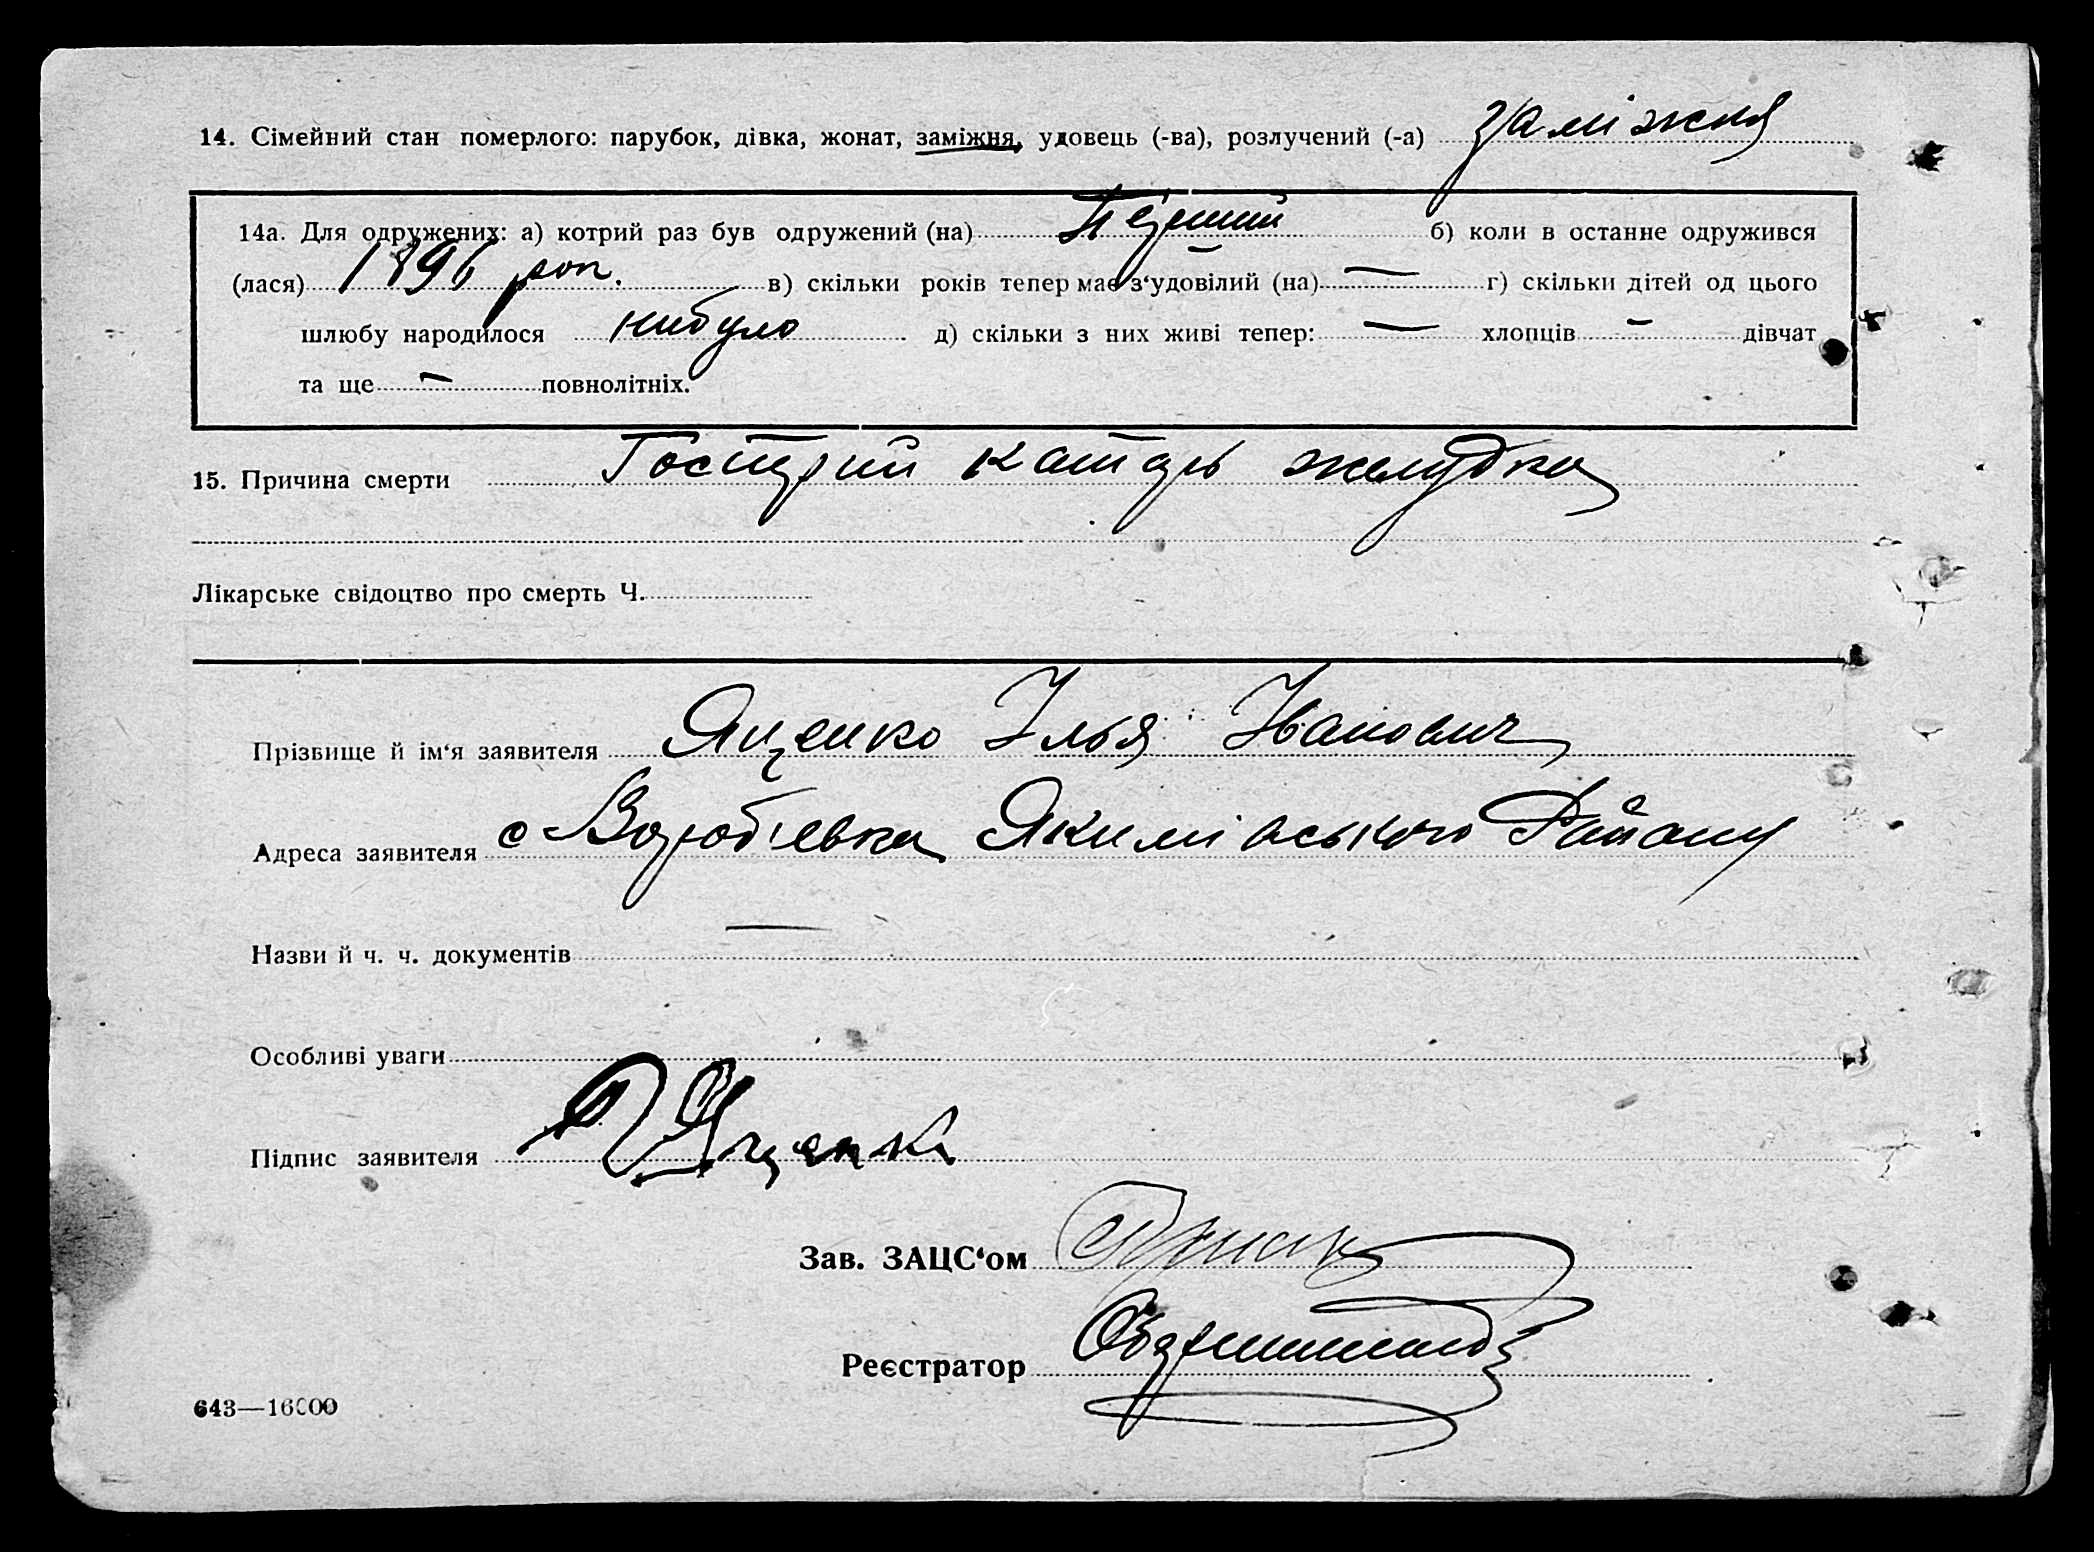 14. Сімейний стан померлого: парубок, дівка, жонат, заміжня, удовець (-ва), розлучений (-а) заміжня
14а. Для одружених: а) котрий раз був одружений (на) Перший б) коли в останнє одружився
(лася) 1896 роп. в) скільки років тепер має з‘удовілий (на) — г) скільки дітей од цього
шлюбу народилося небуло д) скільки з них живі тепер: — хлопців – дівчат
та ще – повнолітніх.
15. Причина смерти Гострий катарь желудка
Лікарське свідоцтво про смерть Ч.
Прізвище й ім‘я заявителя Яценко Илья Иванович
Адреса заявителя с Вороб'евка Якимівського Району
Назви й ч. ч. документів —
Особливі уваги
Підпис заявителя Яценко
Зав. ЗАЦС‘ом
Реєстратор
643—16000